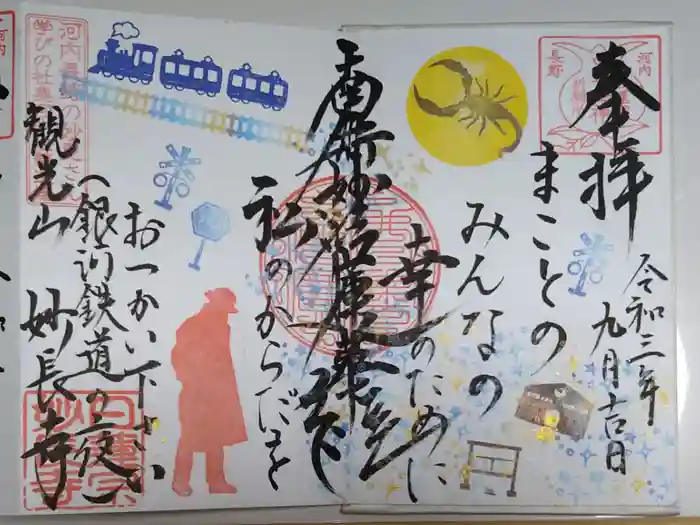 奉拝
令和三年
九月吉日
まことの
みんなの
幸のために
南無妙法蓮華経
私のからだを
おつかい下さい
(銀河鉄道の夜)
観光山 妙長寺
河内
長野